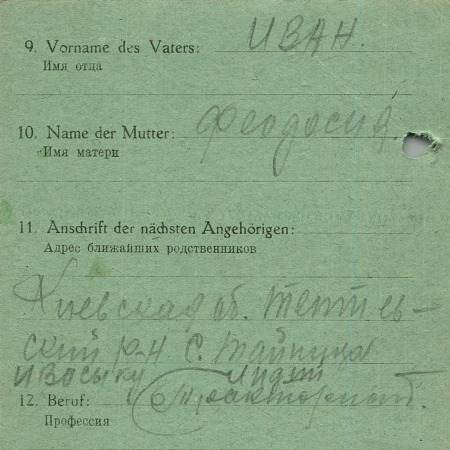 9. Vorname des Vaters: ИВАН.
Имя отца
10. Name der Mutter: Феодосия.
Имя матери
11. Anschrift der nächsten Angehörigen:
Адрес ближайших родственников
Киевская об. Тетиев-
ский р-н С. Тайница
Лидей
12. Beruf: Тракторист.
Профессия